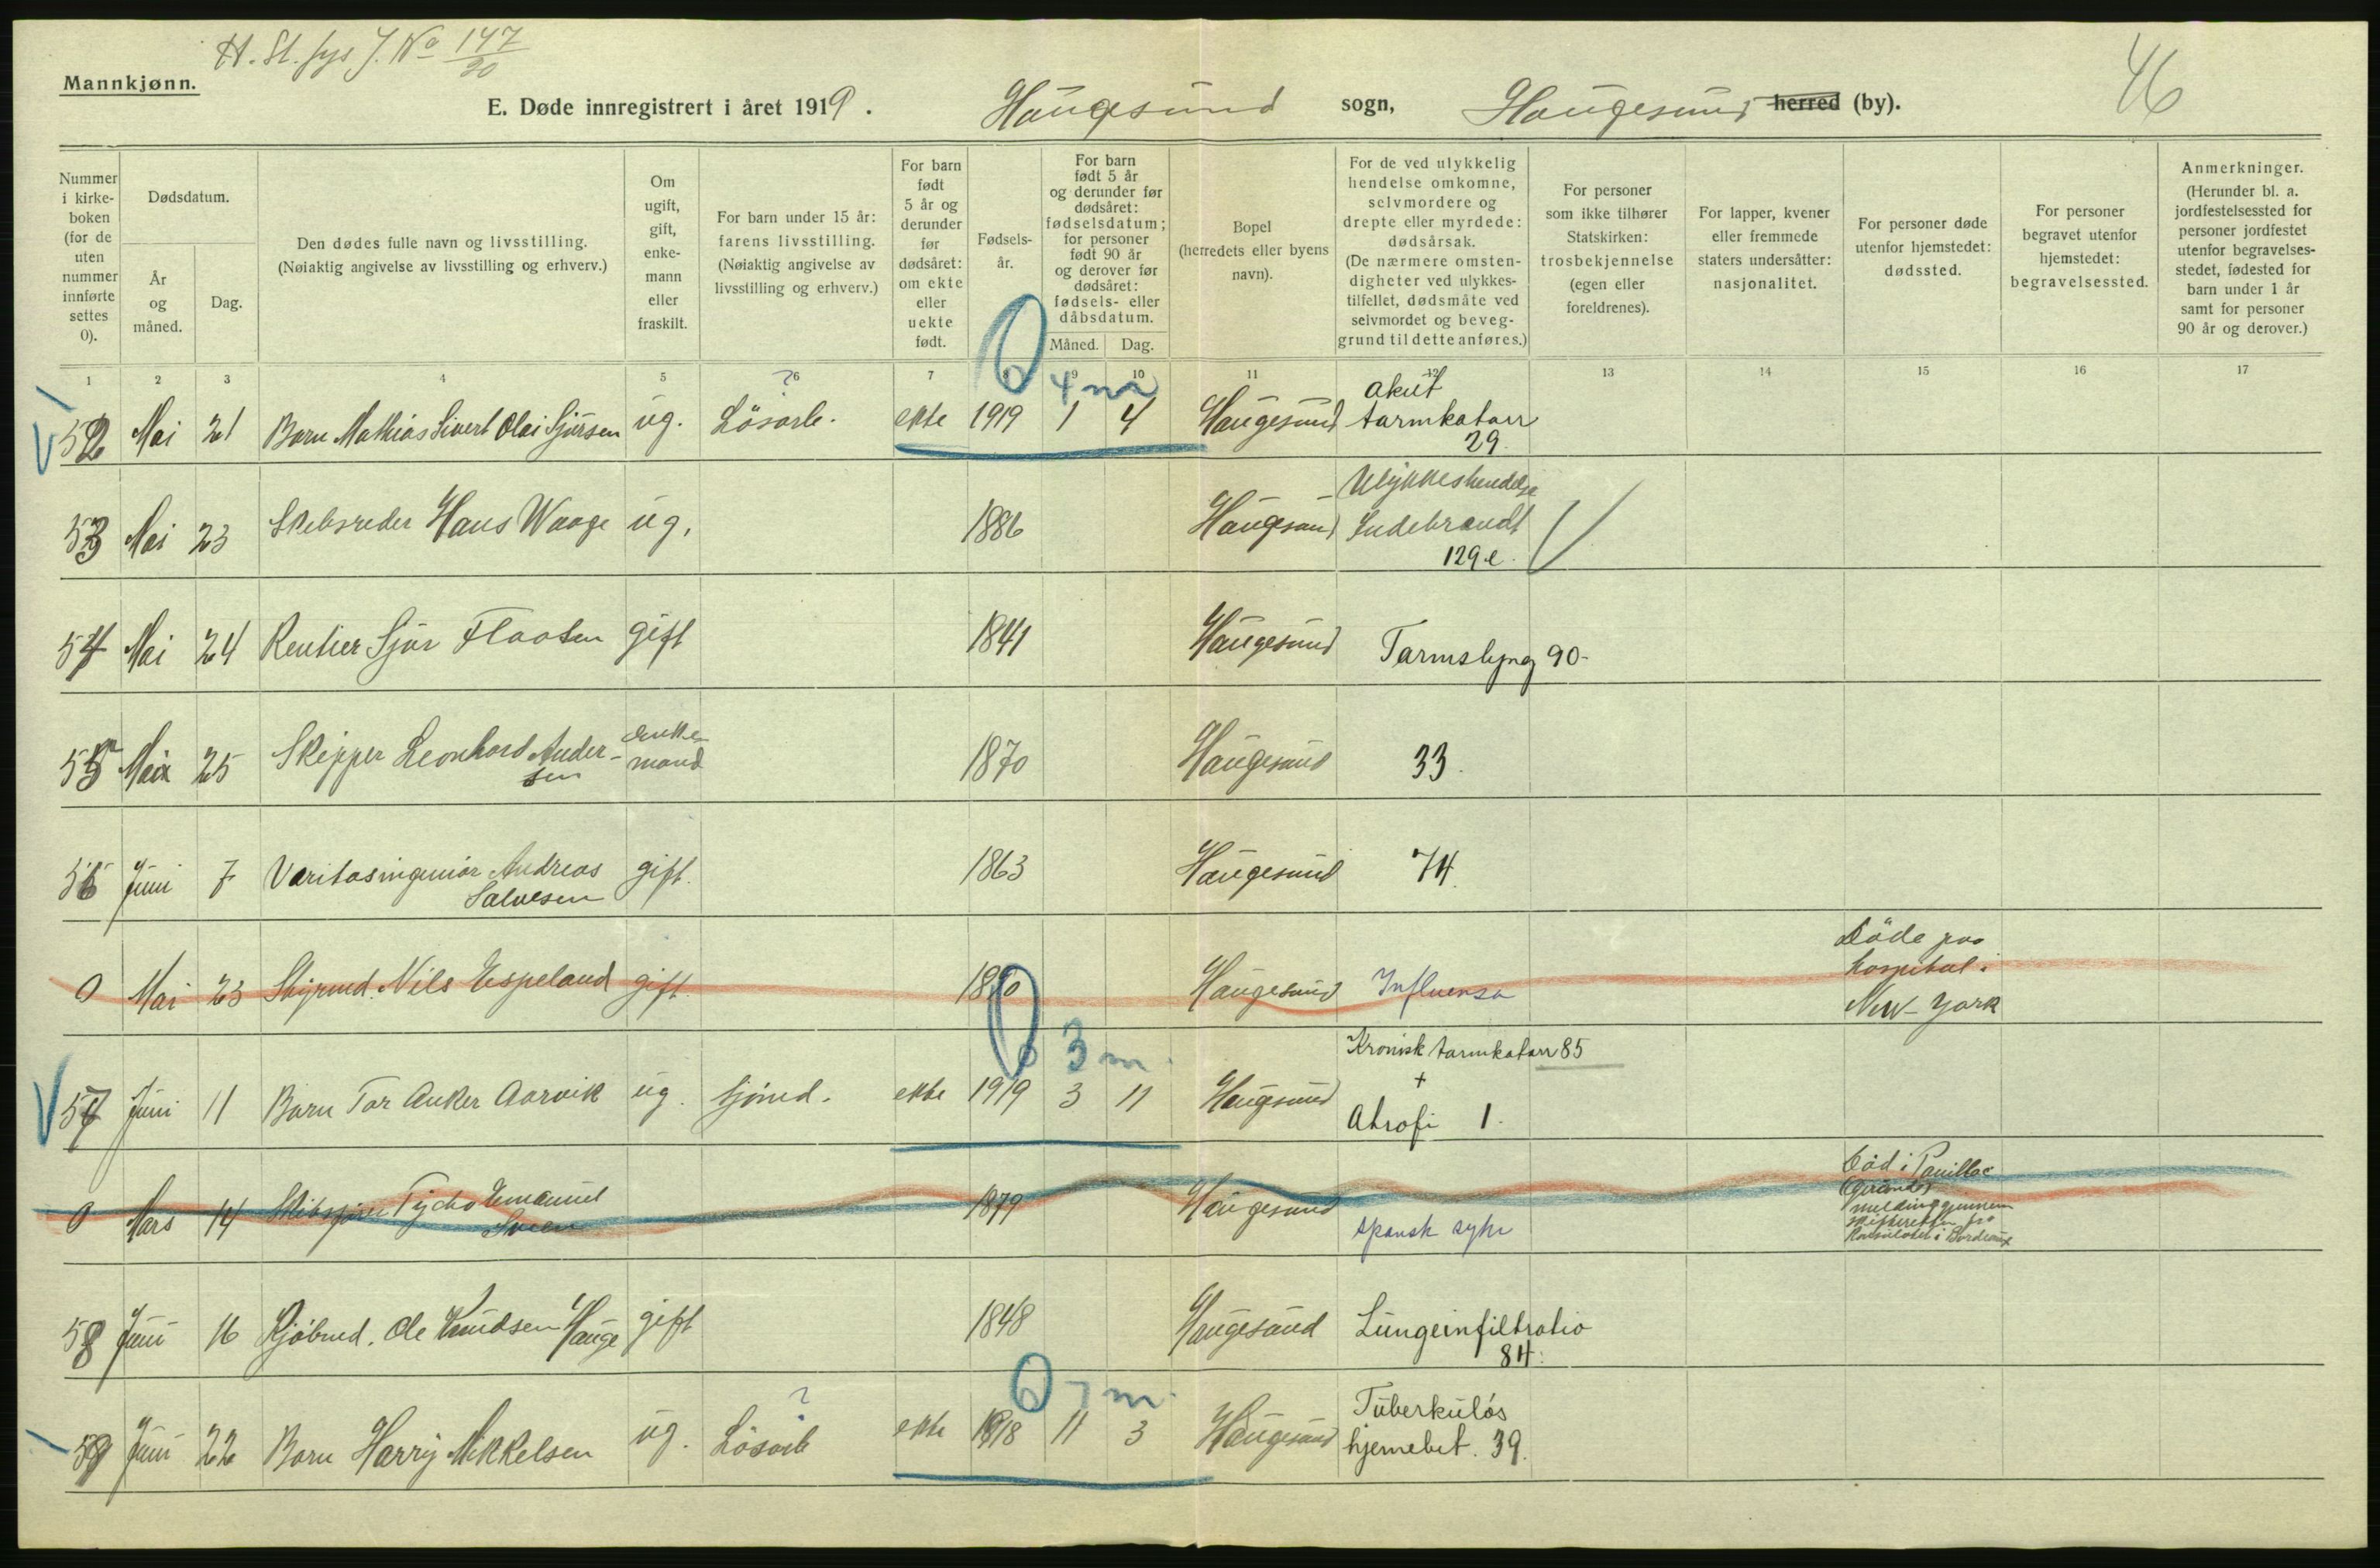 H. St. sys J. No 147/20
46
Mannkjønn.
E. Døde innregistrert i året 1919. Haugesund sogn, Haugesund herred (by).
Nummer i kirkeboken (for de uten nummer innførte settes 0).
Dødsdatum.
År og måned.
Dag.
Den dødes fulle navn og livsstilling.
(Nøiaktig angivelse av livsstilling og erhverv.)
Om ugift, gift, enkemann eller fraskilt.
For barn under 15 år: farens livsstilling.
(Nøiaktig angivelse av livsstilling og erhverv.)
For barn født 5 år og derunder før dødsåret: om ekte eller uekte født.
Fødselsår.
For barn født 5 år og derunder før dødsåret: fødselsdatum; for personer født 90 år og derover før dødsåret: fødsels- eller dåbsdatum.
Måned. Dag.
Bopel
(herredets eller byens navn).
For de ved ulykkelig hendelse omkomne, selvmordere og drepte eller myrdede: dødsårsak.
(De nærmere omstendigheter ved ulykkestilfellet, dødsmåte ved selvmordet og beveggrund til dette anføres.)
For personer som ikke tilhører Statskirken: trosbekjennelse (egen eller foreldrenes).
For lapper, kvener eller fremmede staters undersåtter: nasjonalitet.
For personer døde utenfor hjemstedet: dødssted.
For personer begravet utenfor hjemstedet: begravelsessted.
Anmerkninger.
(Herunder bl. a. jordfestelsessted for personer jordfestet utenfor begravelsesstedet, fødested for barn under 1 år samt for personer 90 år og derover.)
1 2 3 4 5 ?6 7 8 9 10 11 12 13 14 15 16 17
0 4 m
52 Mai 21 Barn Mathias Sivert Olai Sjursen ug. Lösarb. ekte 1919 1 4 Haugesund akut tarmkatarr 29.
53 Mai 23 Skibsreder Hans Waage ug. 1886 Haugesund Ulykkeshendelse Indebrændt 129.e.
54 Mai 24 Rentier Sjur Flaaten gift 1841 Haugesund Tarmslyng 90-
55 Mai 25 Skipper Leonhard Andersen enkemand 1870 Haugesund 33.
56 Juni 7 Veritasingeniör Andreas Salvesen gift. 1863 Haugesund 74.
0 Mai 23 Nils Espeland gift. Haugesund Influensa Döde paa hospital i New-York
0 3 m.
57 Juni 11 Barn Tor Anker Aarvik ug. sjömd. ekte 1919 3 11 Haugesund Kronisk tarmkatarr 85 + Atrofi 1.
0 Mars 14 Tycho Emanuel 1879 Haugesund spansk syke Död i Pauillac (Gironde) melding gjennem skifteretten fra Konsulatet i Bordeaux
58 Juni 16 Kjöbmd. Ole Knudsen Hauge gift 1848 Haugesund Lungeinfiltratio 84.
0 7 m.
59 Juni 22 Barn Harry Mikkelsen ug. ? Lösarb ekte 1918 11 3 Haugesund Tuberkulös hjernebet. 39.